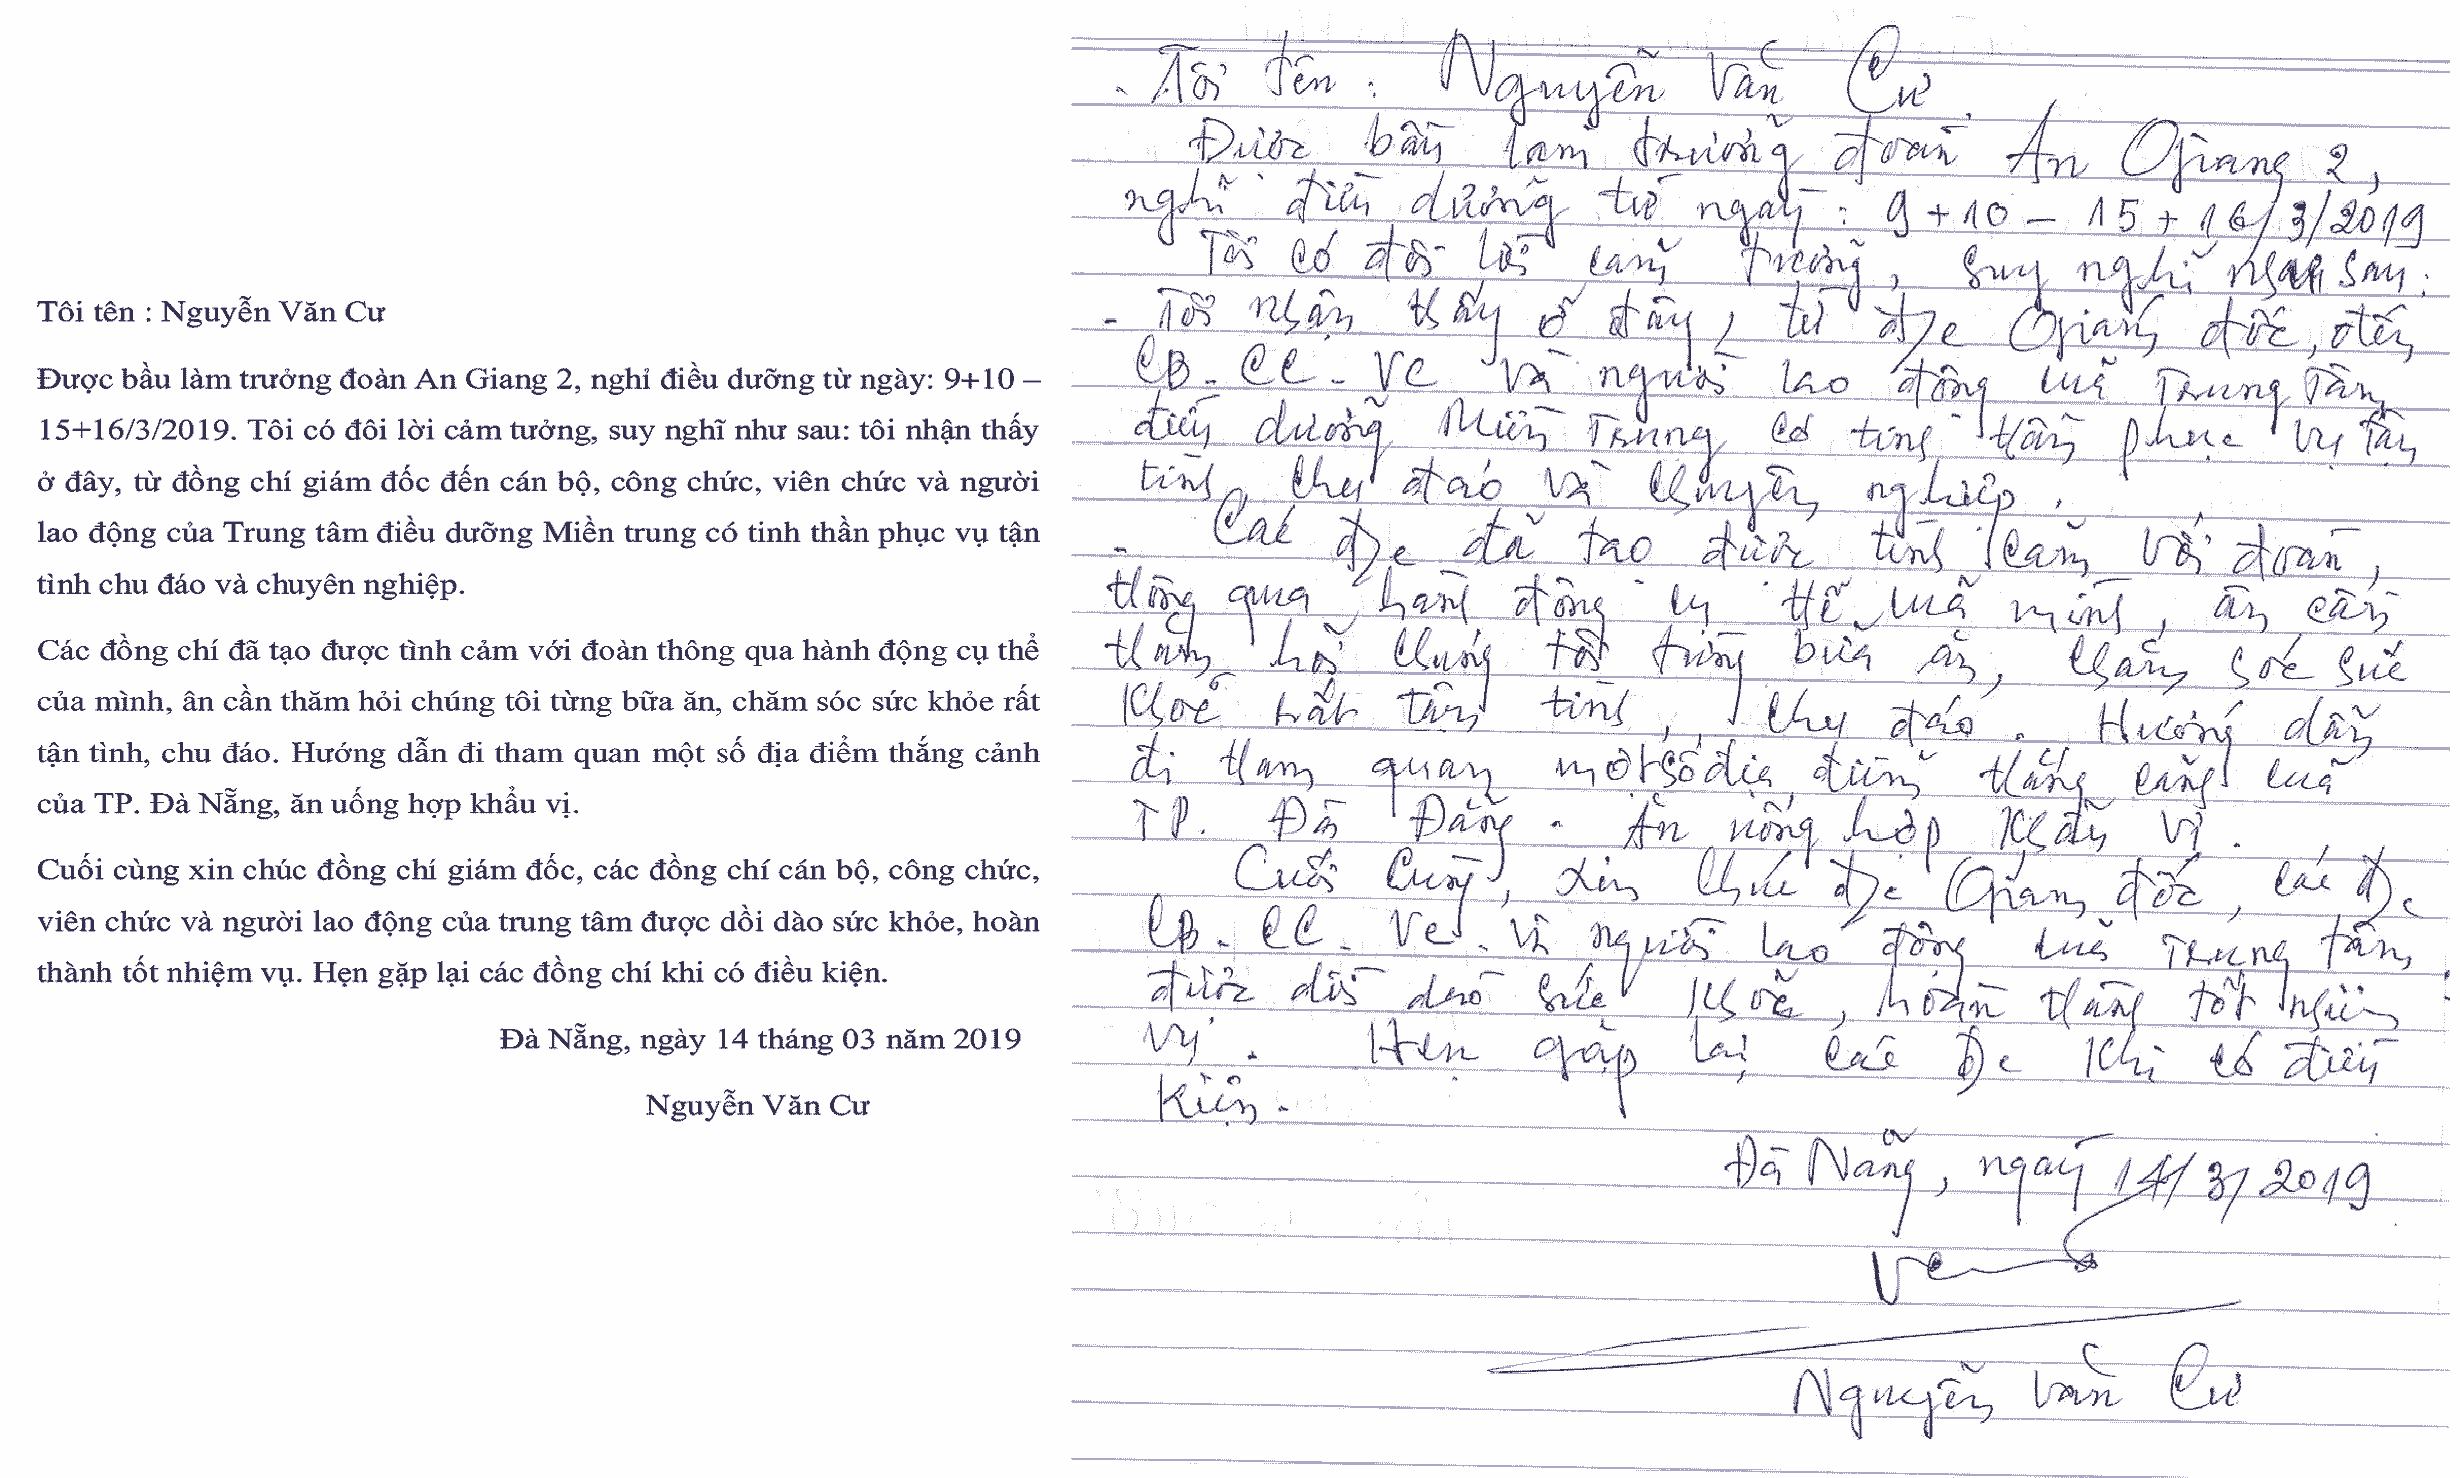 Tôi tên : Nguyễn Văn Cư
Được bầu làm trưởng đoàn An Giang 2, nghỉ điều dưỡng từ ngày: 9+10 –
15+16/3/2019. Tôi có đôi lời cảm tưởng, suy nghĩ như sau: tôi nhận thấy
ở đây, từ đồng chí giám đốc đến cán bộ, công chức, viên chức và người
lao động của Trung tâm điều dưỡng Miền trung có tinh thần phục vụ tận
tình chu đáo và chuyên nghiệp.
Các đồng chí đã tạo được tình cảm với đoàn thông qua hành động cụ thể
của mình, ân cần thăm hỏi chúng tôi từng bữa ăn, chăm sóc sức khỏe rất
tận tình, chu đáo. Hướng dẫn đi tham quan một số địa điểm thắng cảnh
của TP. Đà Nẵng, ăn uống hợp khẩu vị.
Cuối cùng xin chúc đồng chí giám đốc, các đồng chí cán bộ, công chức,
viên chức và người lao động của trung tâm được dồi dào sức khỏe, hoàn
thành tốt nhiệm vụ. Hẹn gặp lại các đồng chí khi có điều kiện.
Đà Nẵng, ngày 14 tháng 03 năm 2019
Nguyễn Văn Cư
- Tôi tên : Nguyễn Văn Cư
Được bầu làm trưởng đoàn An Giang 2,
nghỉ điều dưỡng từ ngày : 9 + 10 – 15 + 16/3/2019
Tôi có đôi lời cảm tưởng, suy nghĩ như sau:
- Tôi nhận thấy ở đây, từ đ/c Giám đốc, đến
CB - CC - VC và người lao động của Trung Tâm
điều dưỡng Miền Trung có tinh thần phục vụ tận
tình, chu đáo và chuyên nghiệp.
- Các đ/c đã tạo được tình cảm với đoàn,
thông qua hành động cụ thể của mình, ân cần
thăm hỏi chúng tôi từng bữa ăn, chăm sóc sức
khoẻ rất tận tình, chu đáo. Hướng dẫn
đi tham quan một số địa điểm thắng cảnh của
TP. Đà Đẵng. Ăn uống hợp khẩu vị.
Cuối cùng, xin chúc đ/c Giám đốc, các đ/c
CB - CC - VC - và người lao động của Trung tâm
được dồi dào sức khoẻ, hoàn thành tốt nhiệm
vụ. Hẹn gặp lại các đ/c khi có điều
kiện.
Đà Nẵng, ngày 14/3/2019
Nguyễn Văn Cư